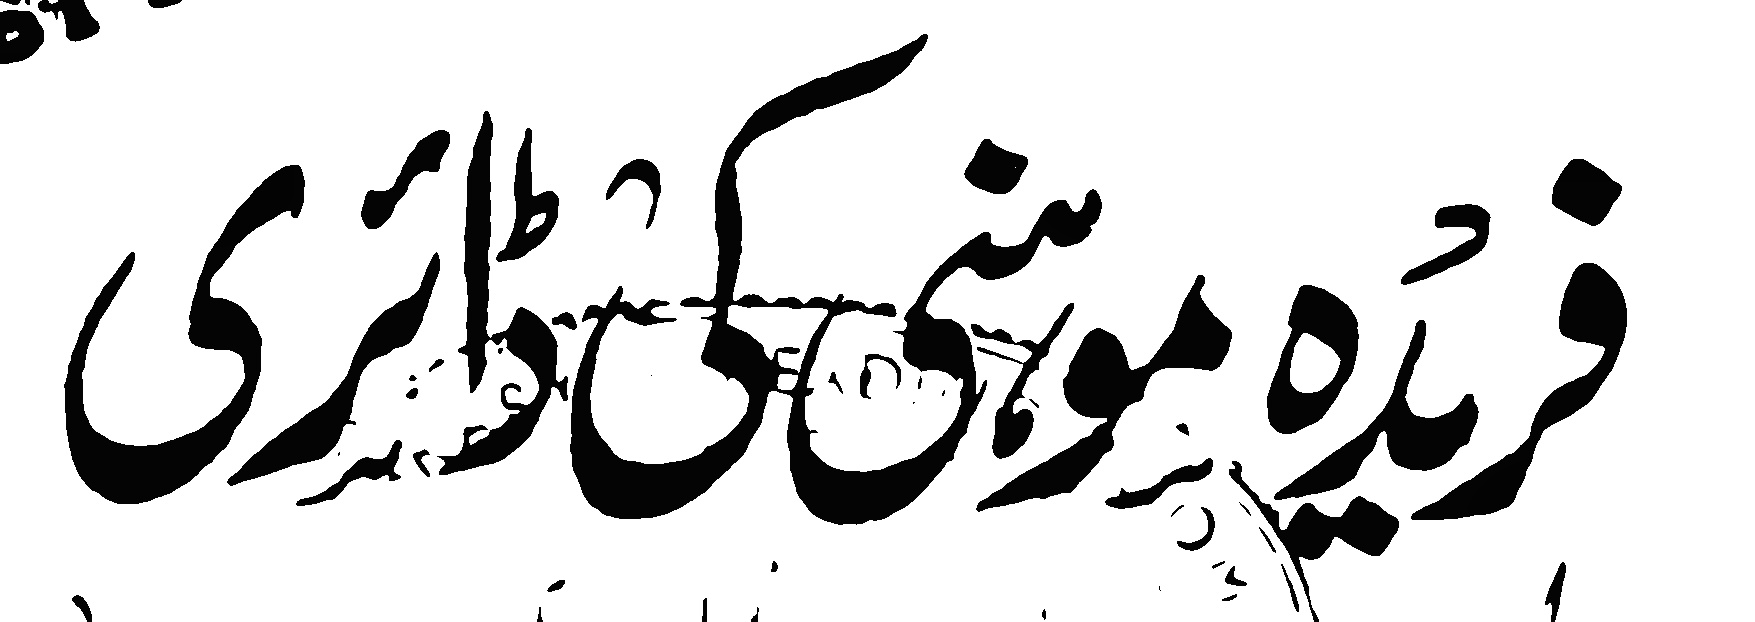 فریدہ موہنی کی ڈائری